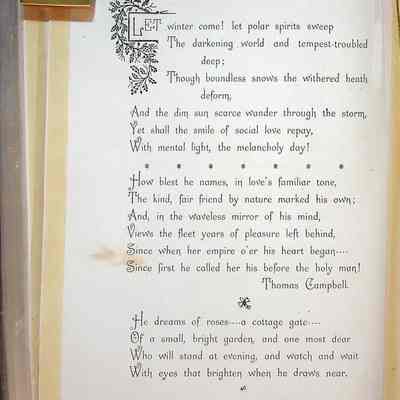 LET winter come! let polar spirits sweep
The darkening world and tempest-troubled
deep;
Though boundless snows the withered heath
deform,
And the dim sun scarce wander through the storm,
Yet shall the smile of social love repay,
With mental light, the melancholy day!
* * * * * * *
How blest he names, in love's familiar tone,
The kind, fair friend by nature marked his own;
And, in the waveless mirror of his mind,
Views the fleet years of pleasure left behind,
Since when her empire o'er his heart began----
Since first he called her his before the holy man!
Thomas Campbell.
He dreams of roses----a cottage gate----
Of a small, bright garden, and one most dear
Who will stand at evening, and watch and wait
With eyes that brighten when he draws near.